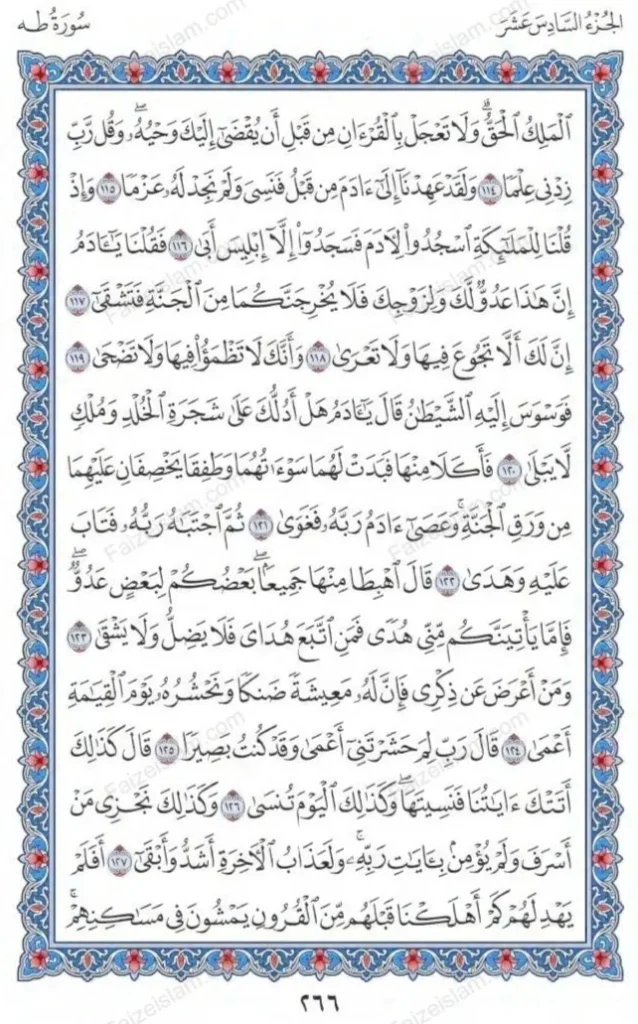 الجُزْءُ السَّادِسَ عَشَرَ
سُورَةُ طه
ٱلْمَلِكُ ٱلْحَقُّۗ وَلَا تَعْجَلْ بِٱلْقُرْءَانِ مِن قَبْلِ أَن يُقْضَىٰٓ إِلَيْكَ وَحْيُهُۥۖ وَقُل رَّبِّ
زِدْنِى عِلْمًا ١١٤ وَلَقَدْ عَهِدْنَآ إِلَىٰٓ ءَادَمَ مِن قَبْلُ فَنَسِىَ وَلَمْ نَجِدْ لَهُۥ عَزْمًا ١١٥ وَإِذْ
قُلْنَا لِلْمَلَٰٓئِكَةِ ٱسْجُدُوا۟ لِءَادَمَ فَسَجَدُوٓا۟ إِلَّآ إِبْلِيسَ أَبَىٰ ١١٦ فَقُلْنَا يَٰٓـَٔادَمُ
إِنَّ هَٰذَا عَدُوٌّ لَّكَ وَلِزَوْجِكَ فَلَا يُخْرِجَنَّكُمَا مِنَ ٱلْجَنَّةِ فَتَشْقَىٰٓ ١١٧
إِنَّ لَكَ أَلَّا تَجُوعَ فِيهَا وَلَا تَعْرَىٰ ١١٨ وَأَنَّكَ لَا تَظْمَؤُا۟ فِيهَا وَلَا تَضْحَىٰ ١١٩
فَوَسْوَسَ إِلَيْهِ ٱلشَّيْطَٰنُ قَالَ يَٰٓـَٔادَمُ هَلْ أَدُلُّكَ عَلَىٰ شَجَرَةِ ٱلْخُلْدِ وَمُلْكٍ
لَّا يَبْلَىٰ ١٢٠ فَأَكَلَا مِنْهَا فَبَدَتْ لَهُمَا سَوْءَٰتُهُمَا وَطَفِقَا يَخْصِفَانِ عَلَيْهِمَا
مِن وَرَقِ ٱلْجَنَّةِۚ وَعَصَىٰٓ ءَادَمُ رَبَّهُۥ فَغَوَىٰ ١٢١ ثُمَّ ٱجْتَبَٰهُ رَبُّهُۥ فَتَابَ
عَلَيْهِ وَهَدَىٰ ١٢٢ قَالَ ٱهْبِطَا مِنْهَا جَمِيعًاۢۖ بَعْضُكُمْ لِبَعْضٍ عَدُوٌّۖ
فَإِمَّا يَأْتِيَنَّكُم مِّنِّى هُدًى فَمَنِ ٱتَّبَعَ هُدَاىَ فَلَا يَضِلُّ وَلَا يَشْقَىٰ ١٢٣
وَمَنْ أَعْرَضَ عَن ذِكْرِى فَإِنَّ لَهُۥ مَعِيشَةً ضَنكًا وَنَحْشُرُهُۥ يَوْمَ ٱلْقِيَٰمَةِ
أَعْمَىٰ ١٢٤ قَالَ رَبِّ لِمَ حَشَرْتَنِىٓ أَعْمَىٰ وَقَدْ كُنتُ بَصِيرًا ١٢٥ قَالَ كَذَٰلِكَ
أَتَتْكَ ءَايَٰتُنَا فَنَسِيتَهَاۖ وَكَذَٰلِكَ ٱلْيَوْمَ تُنسَىٰ ١٢٦ وَكَذَٰلِكَ نَجْزِى مَنْ
أَسْرَفَ وَلَمْ يُؤْمِنۢ بِـَٔايَٰتِ رَبِّهِۦۚ وَلَعَذَابُ ٱلْءَاخِرَةِ أَشَدُّ وَأَبْقَىٰٓ ١٢٧ أَفَلَمْ
يَهْدِ لَهُمْ كَمْ أَهْلَكْنَا قَبْلَهُم مِّنَ ٱلْقُرُونِ يَمْشُونَ فِى مَسَٰكِنِهِمْۚ
٢٦٦
Faizeislam.com